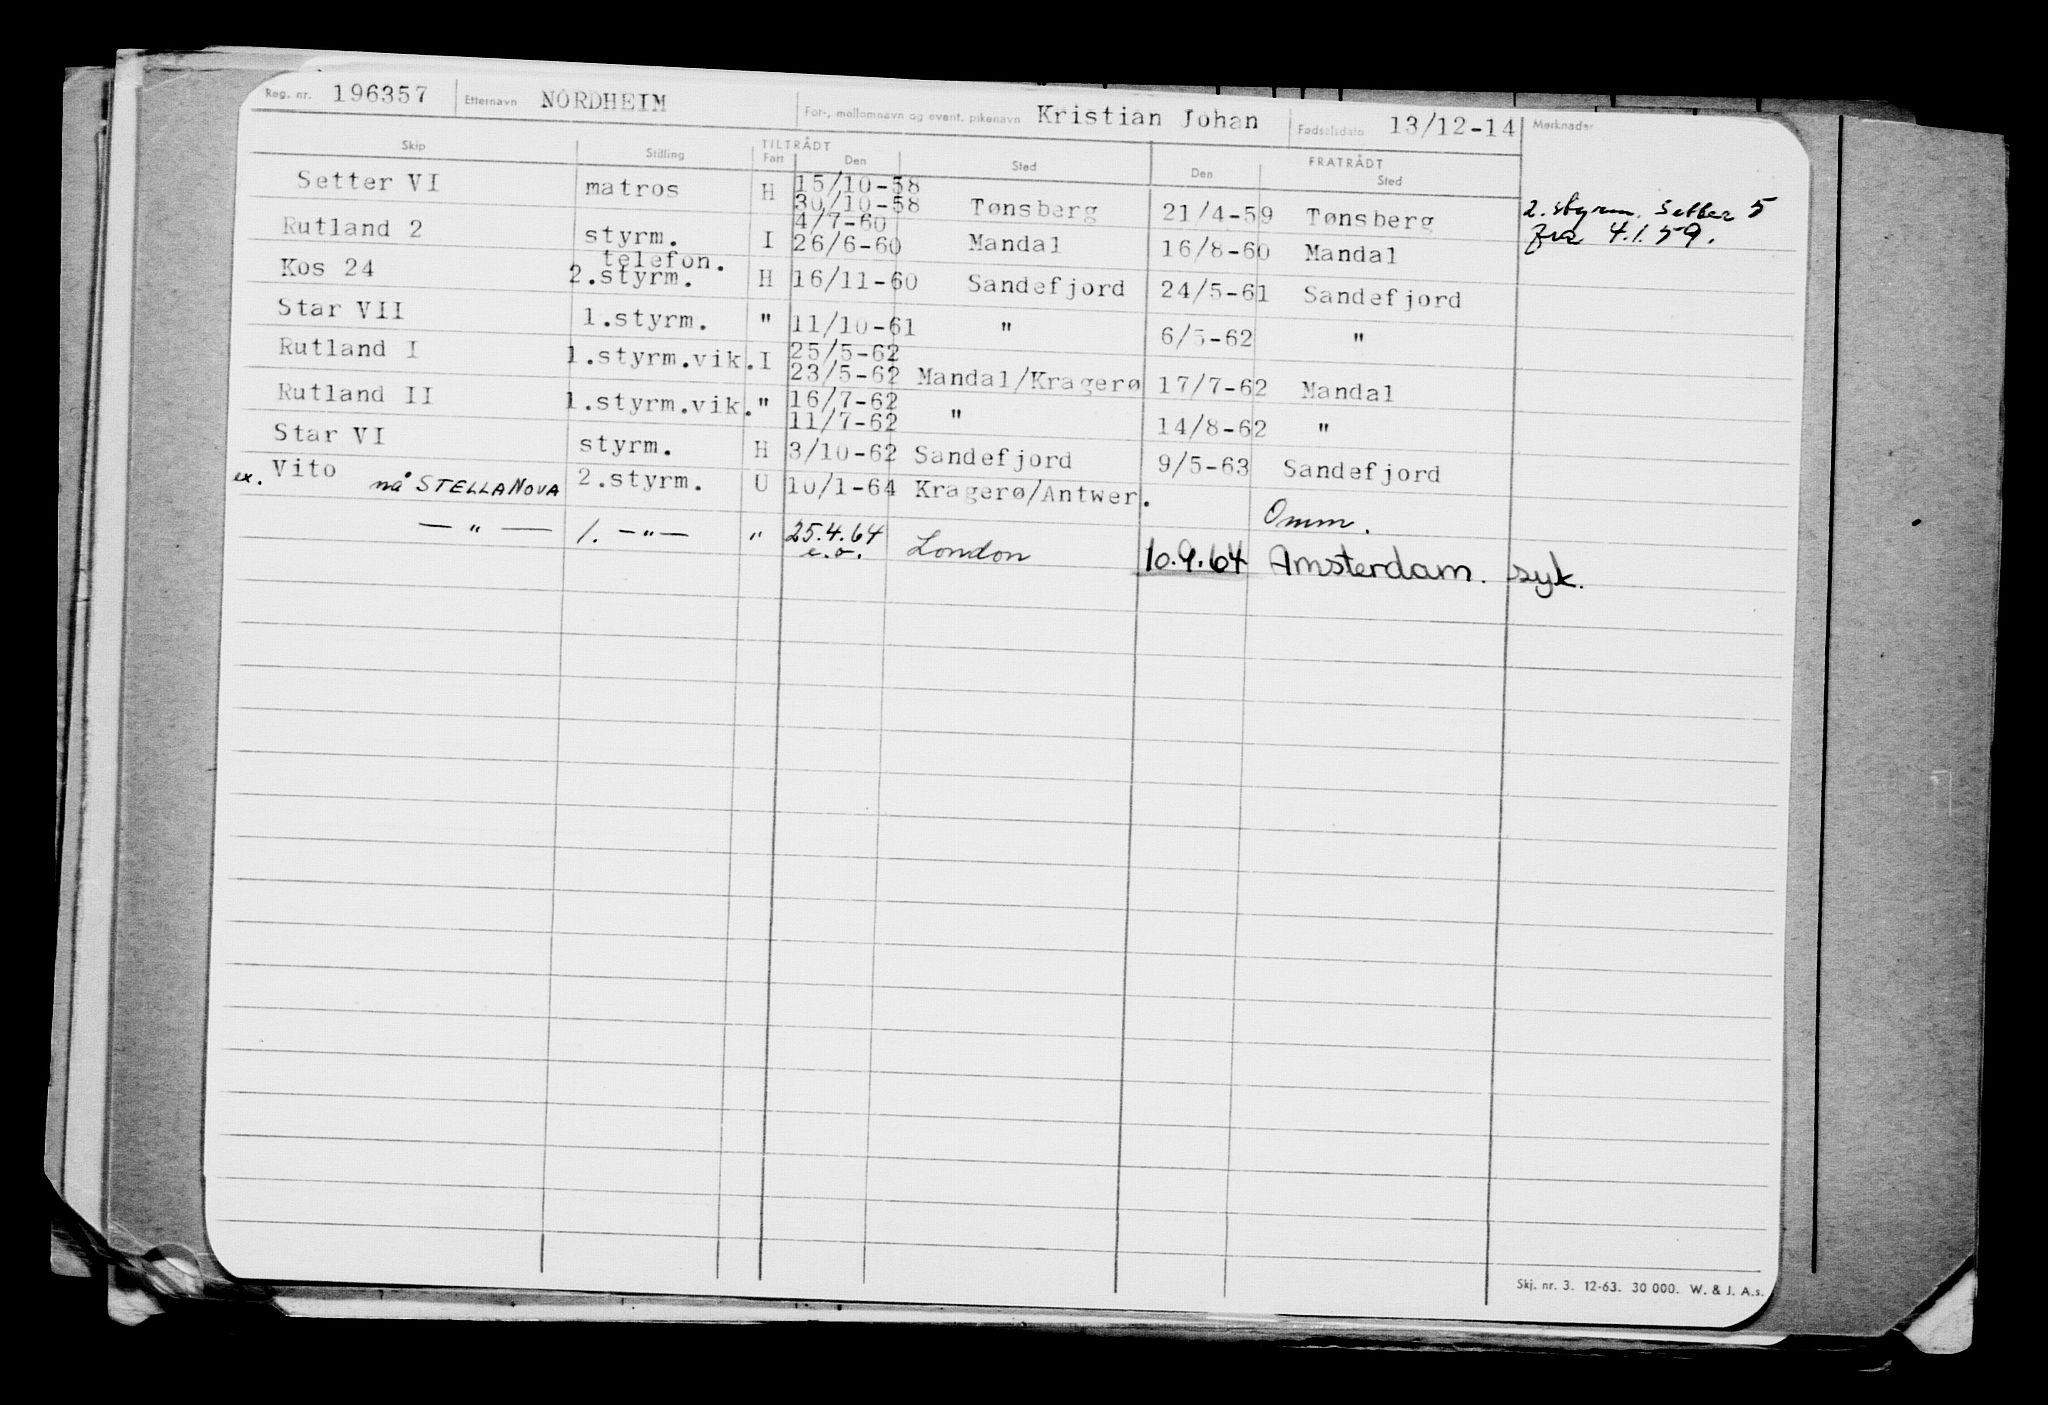 Reg. nr. 196357 Etternavn NORDHEIM For-, mellomnavn og event. pikenavn Kristian Johan Fødselsdato 13/12-14 Merknader
Skip Stilling TILTRÅDT Fart Den Sted FRATRÅDT Den Sted
Setter VI matros H 15/10-58 30/10-58 Tønsberg 21/4-59 Tønsberg 2. styrm. Setter 5
fra 4.1.59.
Rutland 2 styrm. I 4/7-60 26/6-60 Mandal 16/8-60 Mandal
Kos 24 telefon. 2.styrm. H 16/11-60 Sandefjord 24/5-61 Sandefjord
Star VII 1.styrm. " 11/10-61 " 6/5-62 "
Rutland I 1.styrm.vik. I 25/5-62 23/5-62 Mandal/Kragerø 17/7-62 Mandal
Rutland II 1.styrm.vik. " 16/7-62 11/7-62 " 14/8-62 "
Star VI styrm. H 3/10-62 Sandefjord 9/5-63 Sandefjord
ex. Vito nå STELLANOVA 2.styrm. U 10/1-64 Kragerø/Antwer. Omm.
— " — 1. — " — " 25.4.64 e.o. London 10.9.64 Amsterdam. syk.
Skj. nr. 3. 12-63. 30 000. W. & J. A.s.